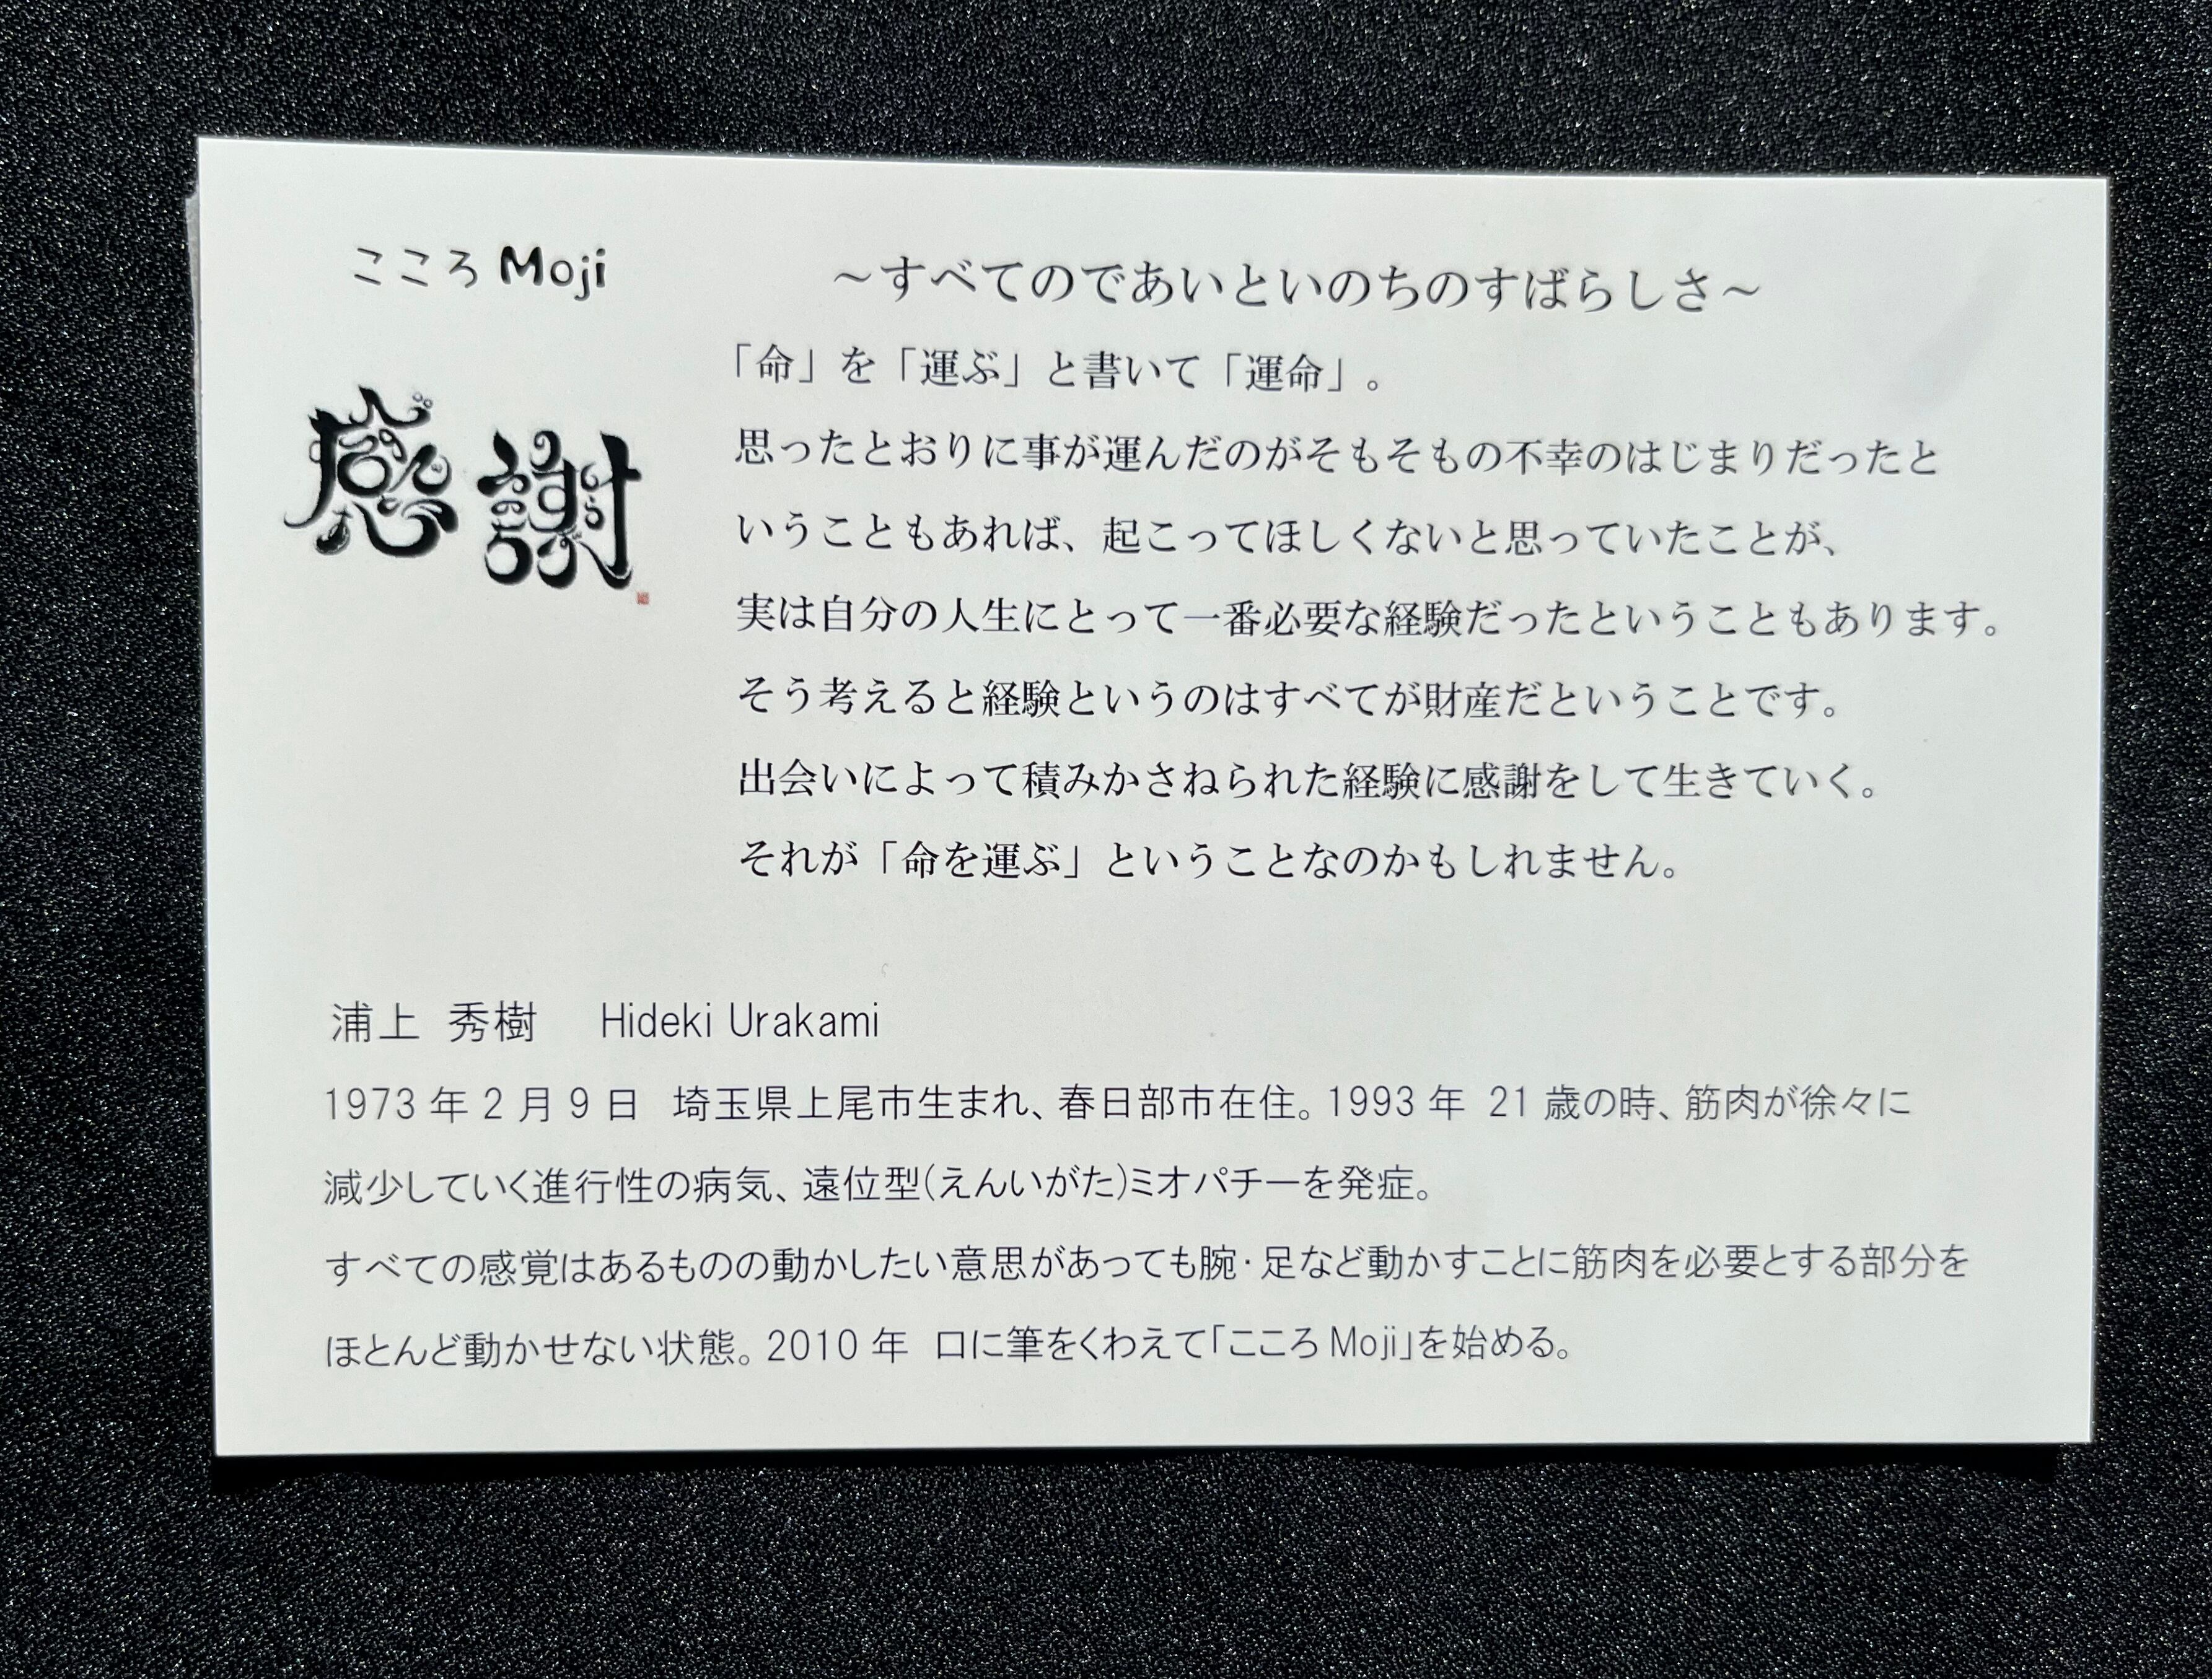 こころMoji
感謝
～すべてのであいといのちのすばらしさ～
「命」を「運ぶ」と書いて「運命」。
思ったとおりに事が運んだのがそもそもの不幸のはじまりだったと
いうこともあれば、起こってほしくないと思っていたことが、
実は自分の人生にとって一番必要な経験だったということもあります。
そう考えると経験というのはすべてが財産だということです。
出会いによって積みかさねられた経験に感謝をして生きていく。
それが「命を運ぶ」ということなのかもしれません。
浦上 秀樹 Hideki Urakami
1973年2月9日 埼玉県上尾市生まれ、春日部市在住。1993年 21歳の時、筋肉が徐々に
減少していく進行性の病気、遠位型(えんいがた)ミオパチーを発症。
すべての感覚はあるものの動かしたい意思があっても腕・足など動かすことに筋肉を必要とする部分を
ほとんど動かせない状態。2010年 口に筆をくわえて「こころMoji」を始める。